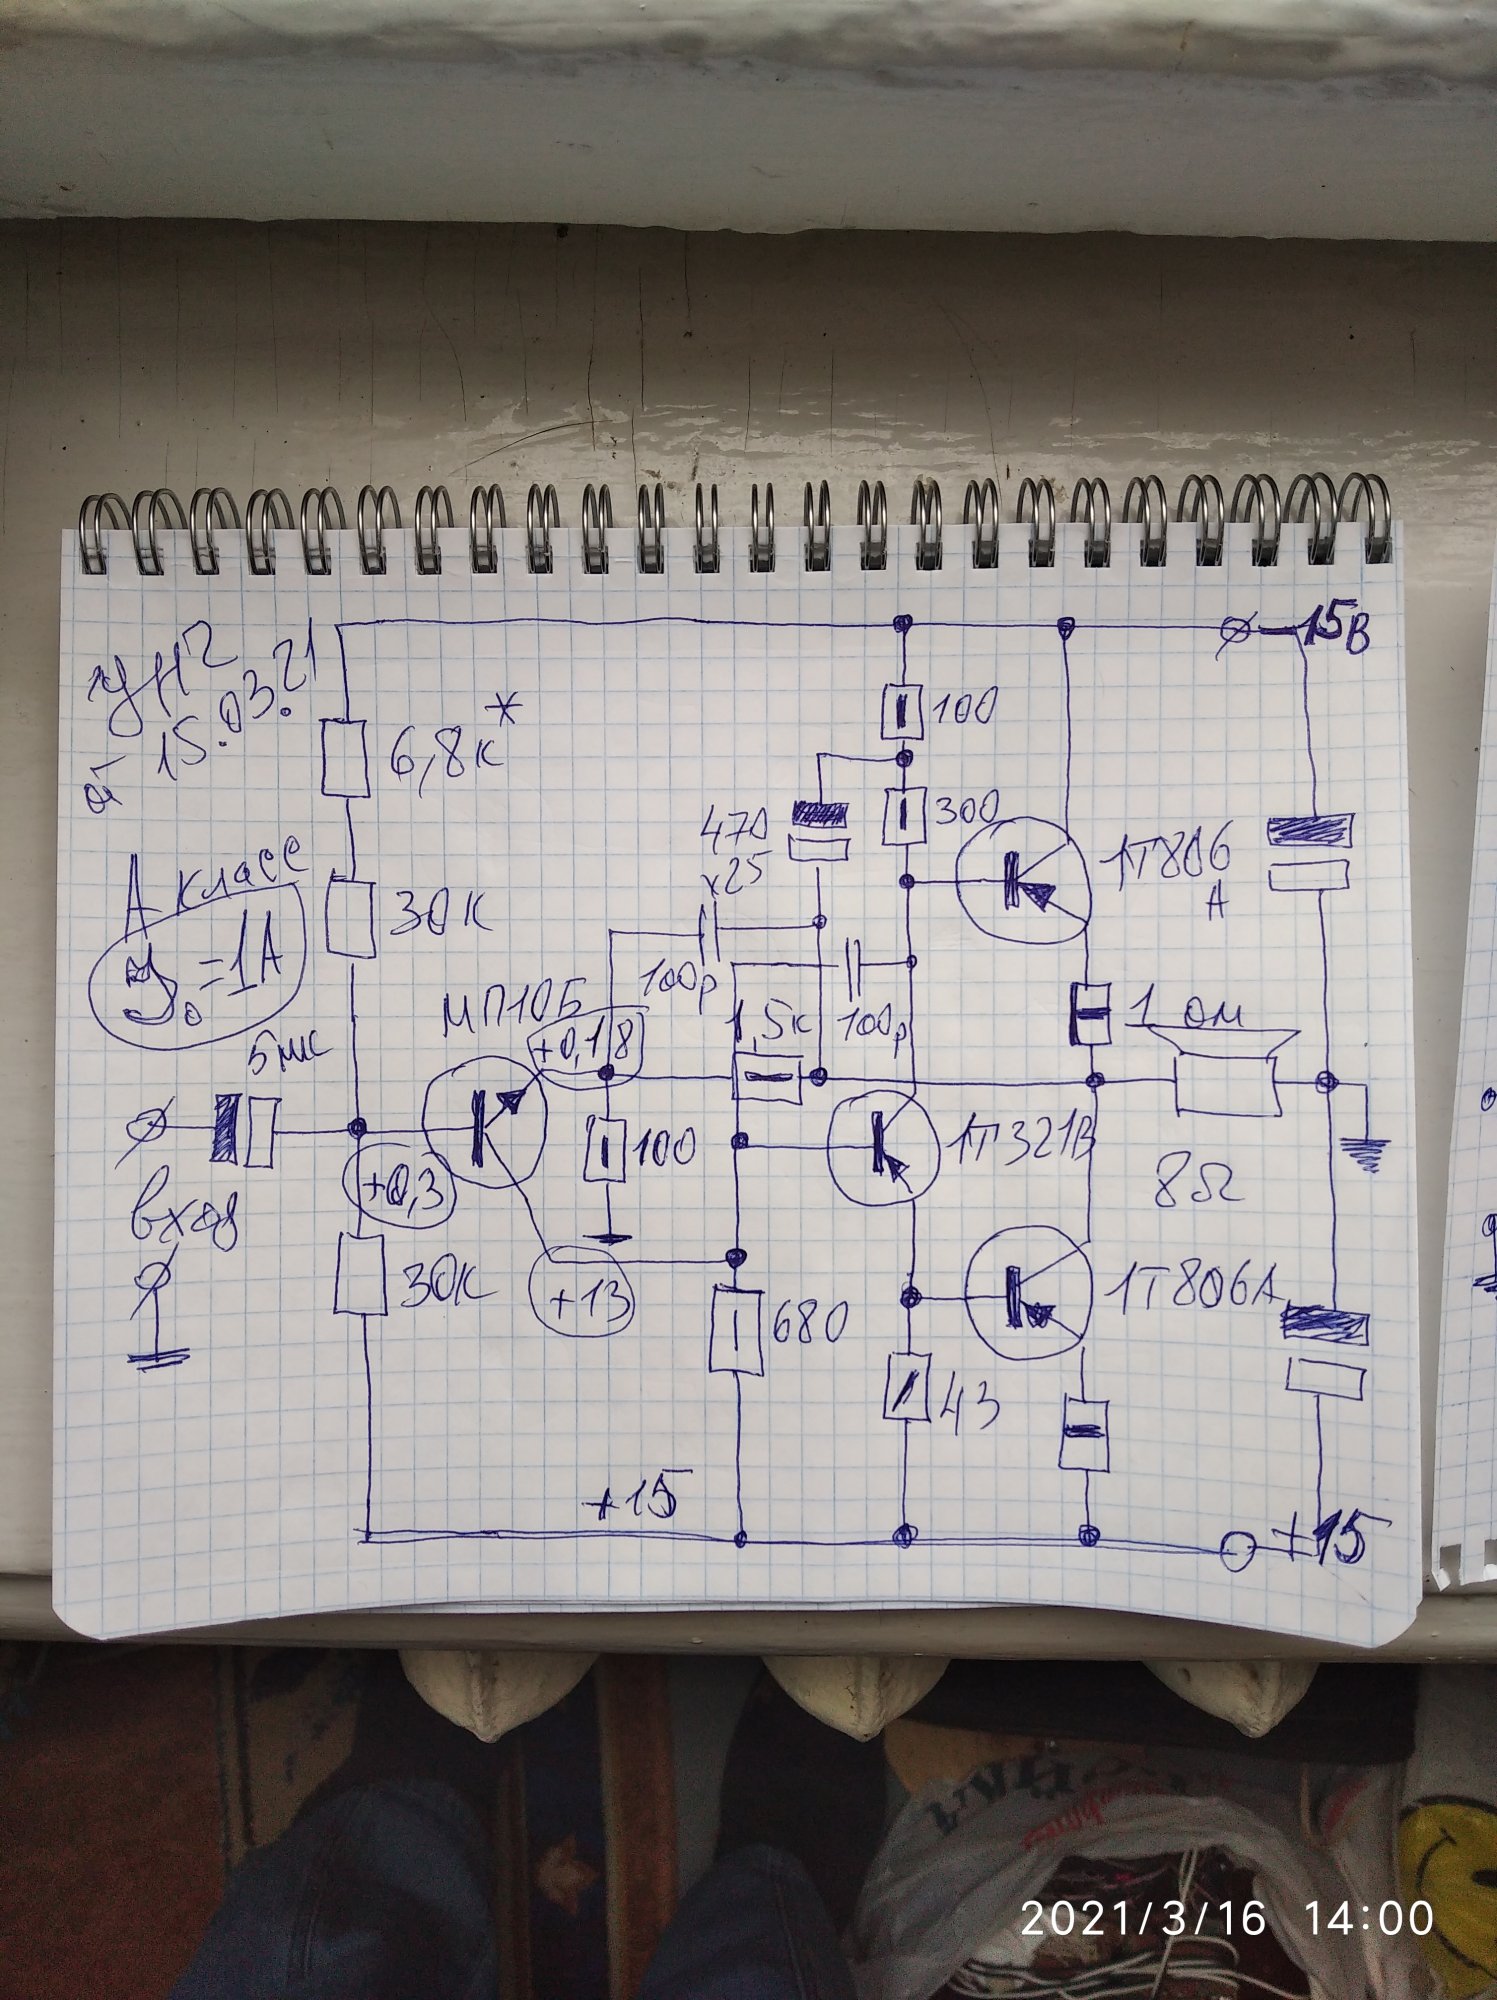 УНЧ
от 15.03.21
А класс
J₀=1А
-15В
6,8к*
100
300
470
x25
1Т806
А
30к
МП10Б
100р
1,5к
100р
1 ом
5мк
+0,18
+0,3
100
1Т321В
8Ω
вход
30к
+13
680
1Т806А
43
+15
+15
2021/3/16 14:00